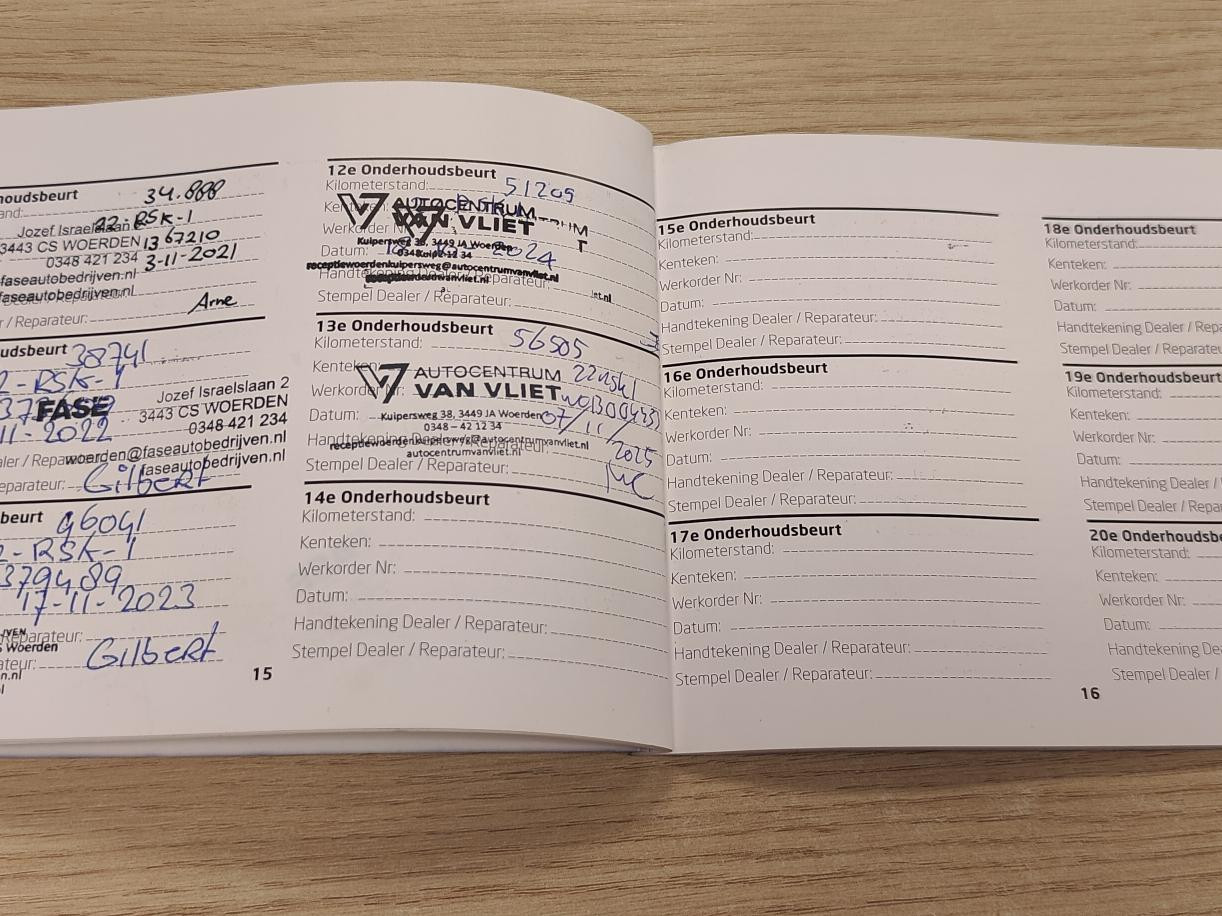 houdsbeurt 34.888
and:
22-RSK-1
Jozef Israelslaan
3443 CS WOERDEN 1367210
0348 421 234 3-11-2021
faseautobedrijven.nl
faseautobedrijven.nl
r / Reparateur: Arne
udsbeurt 38741
2-RSK-1
FASE Jozef Israelslaan 2
3443 CS WOERDEN
11-2022 0348 421 234
woerden@faseautobedrijven.nl
faseautobedrijven.nl
eparateur: Gilbert
beurt 46041
2-RSK-1
379489
17-11-2023
Reparateur:
s Woerden
ateur: Gilbert
n.nl
15
12e Onderhoudsbeurt
Kilometerstand: 51209
AUTOCENTRUM
VAN VLIET
Kuipersweg 38, 3449 JA Woerden
Datum: 2024
receptiewoerdenkuipersweg@autocentrumvanvliet.nl
Handtekening Dealer / Reparateur:
Stempel Dealer / Reparateur:
13e Onderhoudsbeurt
Kilometerstand: 56505
Kenteken: 22rsk1
AUTOCENTRUM
VAN VLIET
Werkorder Nr:
Kuipersweg 38, 3449 JA Woerden
Datum: 07/11/2025
0348 – 42 12 34
Handtekening Dealer / Reparateur:
receptiewoerdenkuipersweg@autocentrumvanvliet.nl
autocentrumvanvliet.nl
Stempel Dealer / Reparateur:
14e Onderhoudsbeurt
Kilometerstand:
Kenteken:
Werkorder Nr:
Datum:
Handtekening Dealer / Reparateur:
Stempel Dealer / Reparateur:
15e Onderhoudsbeurt
Kilometerstand:
Kenteken:
Werkorder Nr:
Datum:
Handtekening Dealer / Reparateur:
Stempel Dealer / Reparateur:
16e Onderhoudsbeurt
Kilometerstand:
Kenteken:
Werkorder Nr:
Datum:
Handtekening Dealer / Reparateur:
Stempel Dealer / Reparateur:
17e Onderhoudsbeurt
Kilometerstand:
Kenteken:
Werkorder Nr:
Datum:
Handtekening Dealer / Reparateur:
Stempel Dealer / Reparateur:
18e Onderhoudsbeurt
Kilometerstand:
Kenteken:
Werkorder Nr:
Datum:
Handtekening Dealer / Repa
Stempel Dealer / Reparateu
19e Onderhoudsbeurt
Kilometerstand:
Kenteken:
Werkorder Nr:
Datum:
Handtekening Dealer /
Stempel Dealer / Rep
20e Onderhoudsbe
Kilometerstand:
Kenteken:
Werkorder Nr:
Datum:
Handtekening De
Stempel Dealer /
16